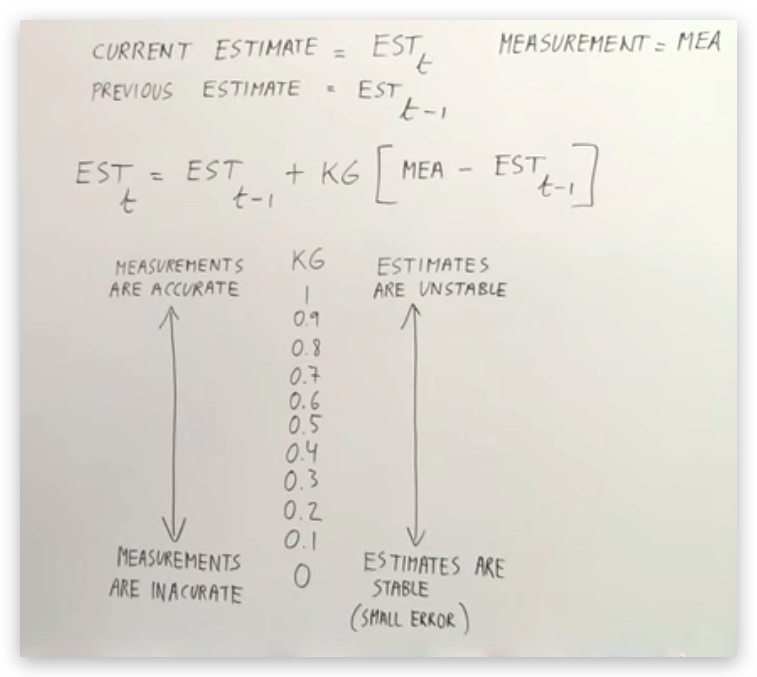 CURRENT ESTIMATE = EST_t MEASUREMENT = MEA
PREVIOUS ESTIMATE = EST_t-1
EST_t = EST_t-1 + KG [MEA - EST_t-1]
MEASUREMENTS KG ESTIMATES
ARE ACCURATE 1 ARE UNSTABLE
0.9
0.8
0.7
0.6
0.5
0.4
0.3
0.2
0.1
MEASUREMENTS ESTIMATES ARE
ARE INACURATE 0 STABLE
(SMALL ERROR)